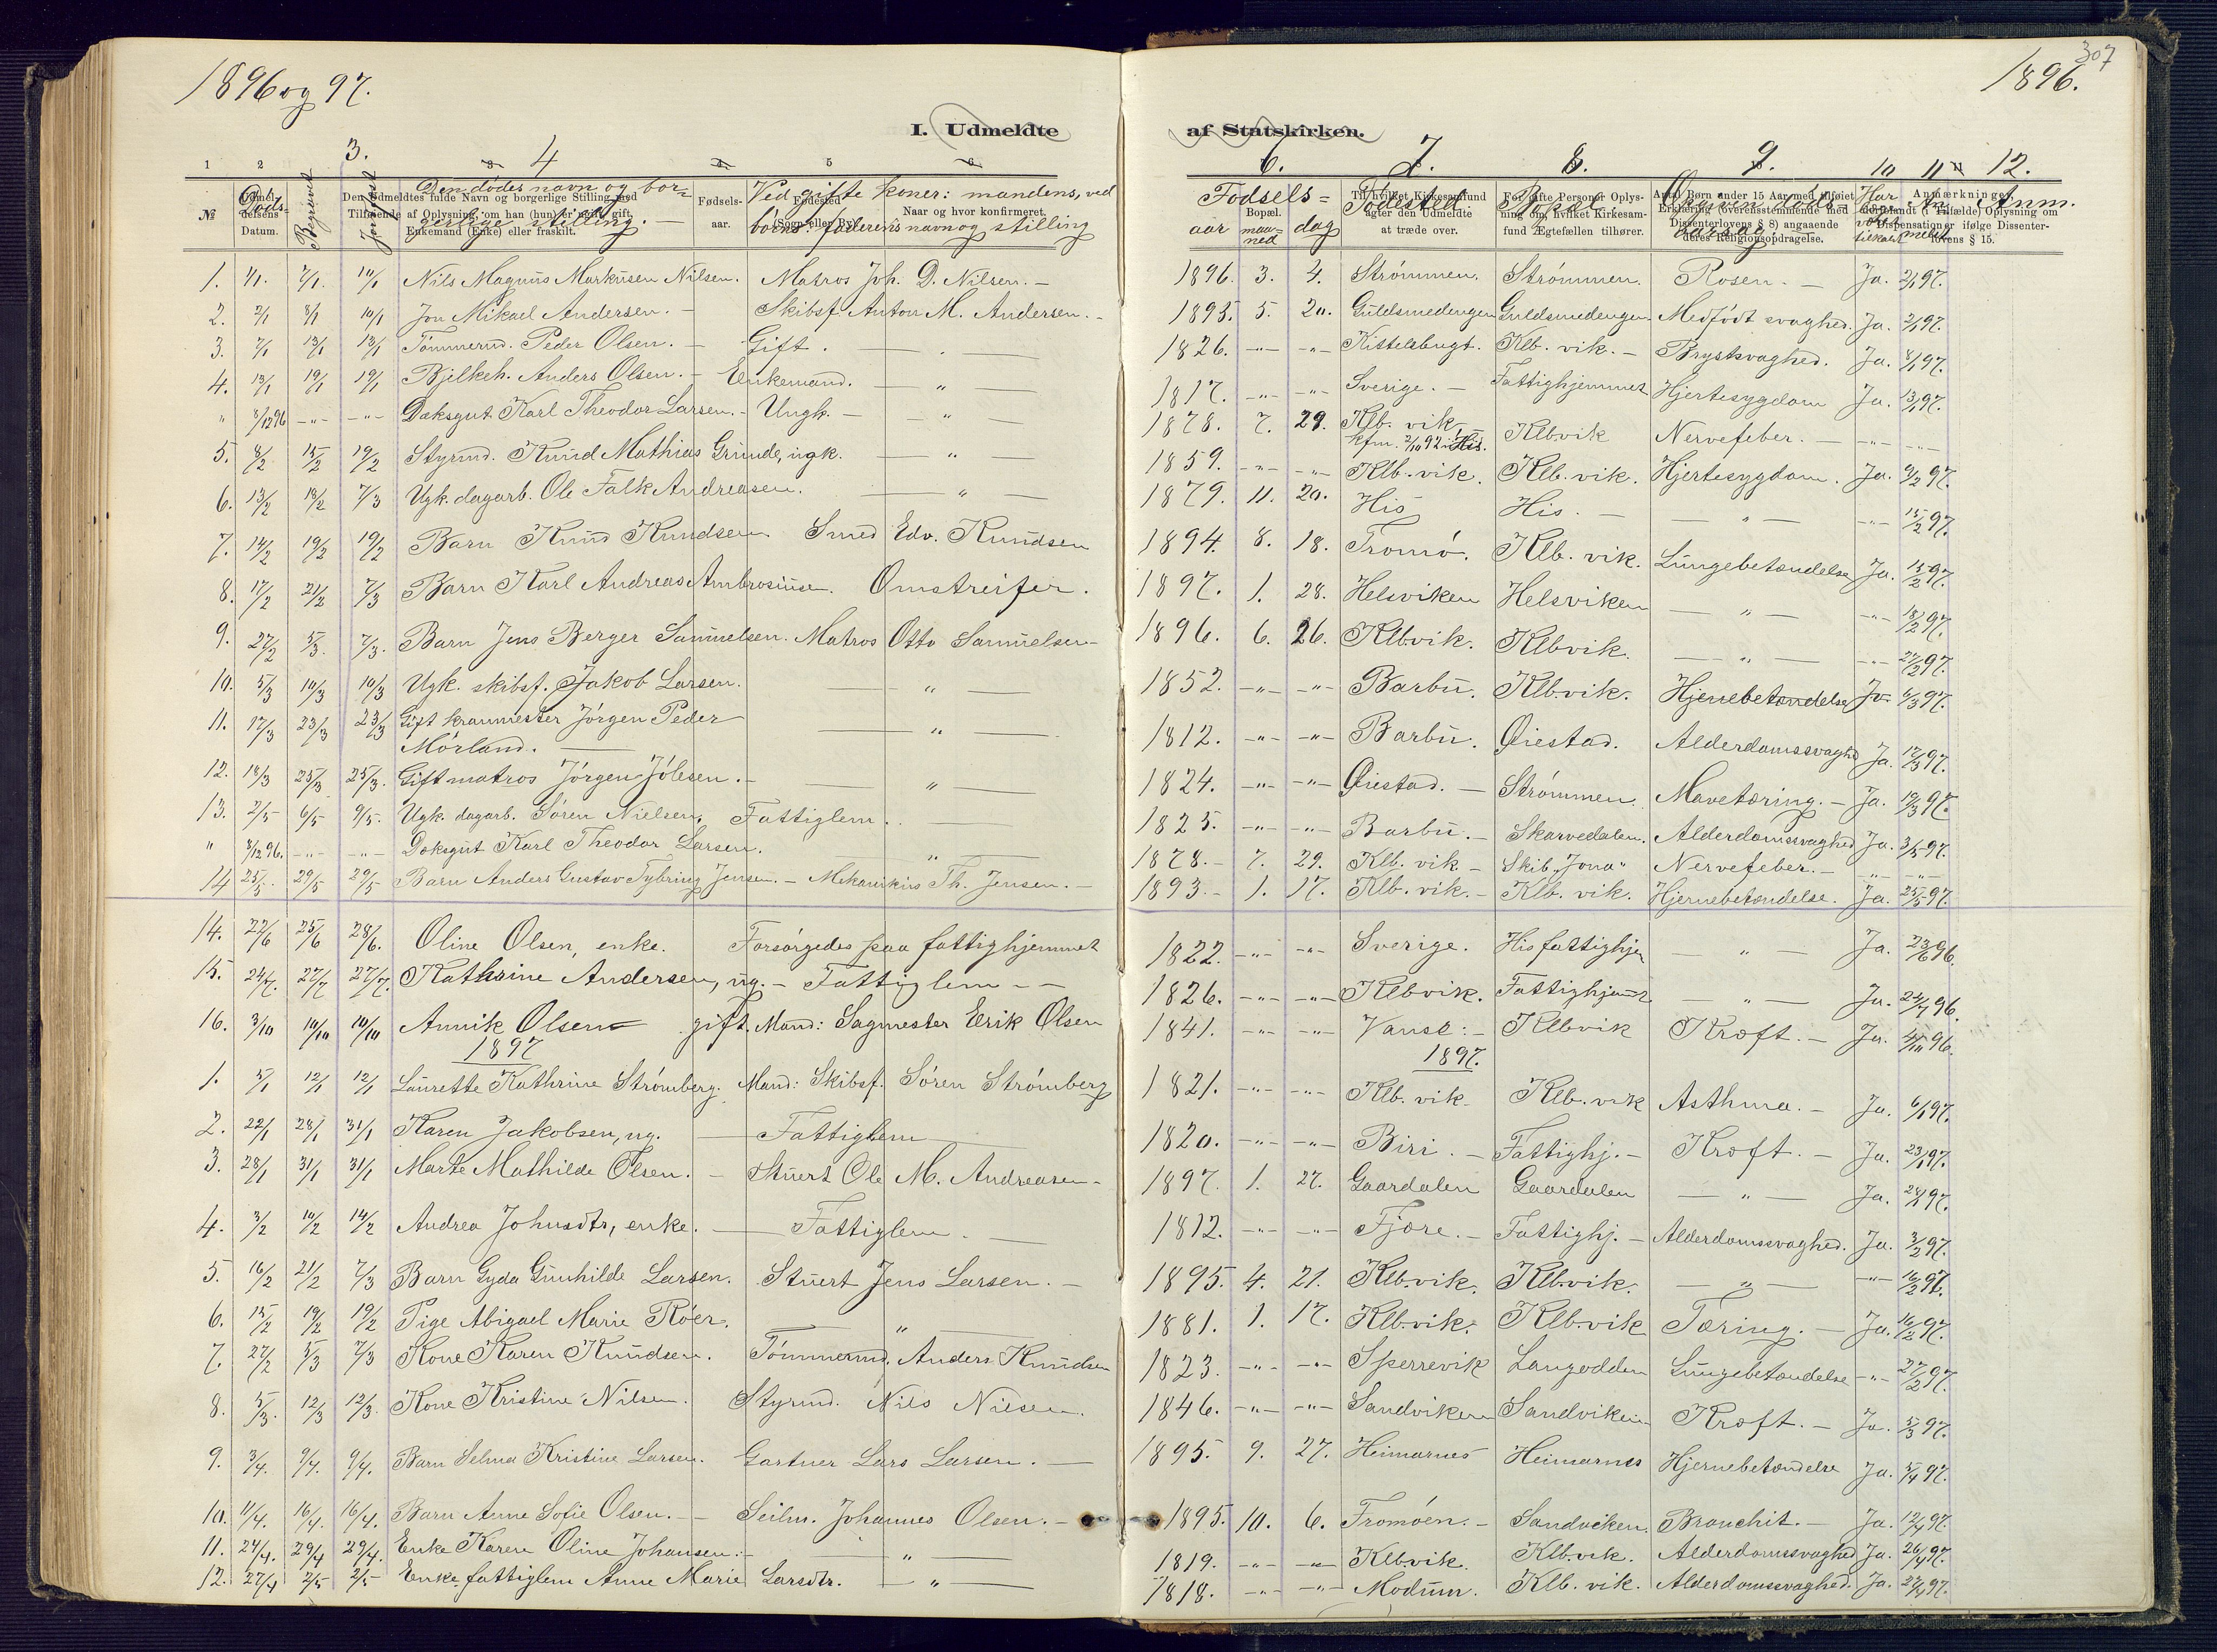 1896 og 97.
I. Udmeldte
1 2 3. 3 4 4 5 6
№ Udmeldelsens Datum. Døds- Begravet Jordfæstet Den Udmeldtes fulde Navn og borgerlige Stilling med Fødsels- Fødested
Tilføiende af Oplysning, om han (hun) er ugift, gift, aar. (Sogn eller By). Naar og hvor konfirmeret.
Enkemand (Enke) eller fraskilt.
Den dødes navn og bor- Ved gifte koner: mandens, ved
gerlige stilling. børns: faderens navn og stilling
1. 1/1. 7/1. 10/1 Nils Magnus Markusen Nilsen. Matros Joh. D. Nilsen. —
2. 2/1 8/1 10/1 Jon Mikael Andersen. — Skibsf. Anton M. Andersen. -
3. 7/1 13/1 13/1 Tømmermd. Peder Olsen. — Gift. —
4. 13/1 19/1 19/1 Bjelkeh. Anders Olsen. - Enkemand. — " —
" 8/12 96 -"- -"- Dæksgut Karl Theodor Larsen. - Ungk. — " —
5. 8/2 15/2 19/2 Styrmd. Knud Mathias Grunde, ugk. — " —
6. 13/2 18/2 7/3 Ugk. dagarb. Ole Falk Andreasen. — " —
7. 14/2 19/2 19/2 Barn Knud Knudsen Smed Edv. Knudsen
8. 17/2 21/2 7/3 Barn Karl Andreas Ambrosiusen. Omstreifer.
9. 27/2 5/3. 7/3. Barn Jens Berger Samuelsen. Matros Otto Samuelsen -
10. 5/3 10/3 10/3 Ugk. skibsf. Jakob Larsen. — " —
11. 17/3 23/3 23/3 Gift kranmester Jørgen Peder — " —
Mørland. —
12. 18/3 25/3 25/3. Gift matros Jørgen Jølesen. — " —
13. 2/5 6/5 9/5. Ugk. dagarb. Søren Nielsen, Fattiglem. —
" 8/12 96. -"- -"- Dæksgut Karl Theodor Larsen. — " —
14 25/5. 29/5 29/5 Barn Anders Gustav Tybring Jensen. - Mekanikus Th. Jensen. —
14. 22/6 25/6 28/6. Oline Olsen, enke. Forsørgedes paa fattighjemmet
15. 24/7. 27/7 27/7. Kathrine Andersen, ug. - Fattiglem - —
16. 3/10 10/10 10/10 Annik Olsen gift. Mand: Sagmester Erik Olsen
1897
1. 5/1 12/1 12/1 Laurette Kathrine Strømberg. Mand: Skibsf. Søren Strømberg
2. 22/1 28/1 31/1 Karen Jakobsen, ug. — Fattiglem —
3. 28/1 31/1 31/1 Marte Mathilde Olsen. - Stuert Ole M. Andreasen -
4. 3/2 10/2 14/2 Andrea Johnsdtr, enke. — Fattiglem. —
5. 16/2 21/2 7/3 Barn Gyda Gunhilde Larsen. Stuert Jens Larsen. —
6. 15/2 19/2 19/2 Pige Abigael Marie Røer. — " —
7. 27/2 5/3 7/3 Kone Karen Knudsen. Tømmermd. Anders Knudsen
8. 5/3. 12/3 12/3. Kone Kristine Nilsen. Styrmd. Nils Nilsen.
9. 3/4. 9/4. 9/4. Barn Selma Kristine Larsen. Gartner Lars Larsen. —
10. 11/4. 16/4. 16/4. Barn Anne Sofie Olsen. — Seilm. Johannes Olsen. -
11. 24/4. 29/4 29/4. Enke Karen Oline Johansen. — " —
12. 27/4 2/5 2/5 Enke, fattiglem Anne Marie Larsdtr. — " —
307
1896.
af Statskirken.
6. 7. 8. 9. 10 11 12.
Bopæl. Til hvilket Kirkesamfund agter den Udmeldte at træde over. For gifte Personer Oplysning om, hvilket Kirkesamfund Ægtefællen tilhører. Antal Børn under 15 Aar med tilføiet Erklæring (overensstemmende med Dissenterlovens § 8) angaaende deres Religionsopdragelse. Anmærkninger. (i Tilfælde) Oplysning om Dispensation ifølge Dissenterlovens § 15.
Fødsels= aar maaned dag Fødested. Bopæl. Anm.
1896. 3. 4. Strømmen. Strømmen. Rosen. — Ja. 2/1 97.
1895. 5. 20. Guldsmedengen Guldsmedengen. Medfødt svaghed. Ja. 2/1 97.
1826. -"- -"- Kittelsbugt. Klb. vik. — Brystsvaghed. Ja. 8/1 97.
1817. -"- -"- Sverige. — Fattighjemmet Hjertesygdom Ja. 13/1 97.
1878. 7. 29. Klb. vik, Klbvik Nervefeber. — -"- -"-
kfm. 2/10 92 i His.
1859. -"- -"- Klb. vik. Klb. vik. Hjertesygdom. Ja. 9/2 97.
1879. 11. 20. His His. — — " — -"- 15/2 97.
1894. 8. 18. Tromø. Klb. vik. Lungebetændelse Ja. 15/2 97.
1897. 1. 28. Helsviken Helsviken — " — -"- 18/2 97.
1896. 6. 26. Klbvik. Klbvik. — " — -"- 27/2 97.
1852. -"- -"- Barbu. Klb.vik. Hjernebetændelse Ja 6/3 97.
1812. -"- -"- Barbu. Øiestad. Alderdomssvaghd Ja. 17/3 97.
1824. -"- -"- Øiestad. — Strømmen. Mavetæring. — Ja. 19/3 97.
1825. -"- -"- Barbu. — Skarvedalen. Alderdomssvaghed Ja. 3/5 97.
1878. - 7. 29. Klb. vik. - Skib "Jona" Nervefeber. — -"- -"-
1893. - 1. 17. Klb. vik. - Klb. vik. Hjernebetændelse. Ja. 25/5 97.
1822. -"- -"- Sverige. His fattighjem — " — Ja. 23/6 96.
1826. -"- -"- Klbvik. Fattighjemt. — " — Ja. 24/7 96.
1841. -"- -"- Vanse: - Klbvik Kræft. — Ja. 4/10 96.
1897.
1821. -"- -"- Klb. vik Klb. vik Asthma. — Ja. 6/1 97.
1820. -"- -"- Biri. — Fattighj. — Kræft. — Ja. 23/1 97.
1897. 1. 27. Gaardalen Gaardalen — " — Ja. 28/1 97.
1812. -"- -"- Fjære. — Fattighj. — Alderdomssvaghed. Ja. 3/2 97.
1895. 4. 21. Klbvik. Klbvik. — " — -"- 16/2 97.
1881. 1. 17. Klbvik. Klbvik Tæring. — Ja. 16/2 97.
1823. -"- -"- Sperrevik Langodden Lungebetændelse -"- 27/2 97.
1846. -"- -"- Sandviken Sandviken Kræft. — Ja. 5/3 97.
1895. 9. 27. Heimarnes Heimarnes Hjernebetændelse Ja. 5/4 97.
1895. 10. 6. Tromøen. — Sandviken. Bronchit. — Ja. 12/4 97.
1819. -"- -"- Klbvik. Klb.vik. Alderdomssvaghed Ja. 26/4 97.
1818. -"- -"- Modum. Klb. vik. Alderdomssvaghed. Ja. 27/4 97.